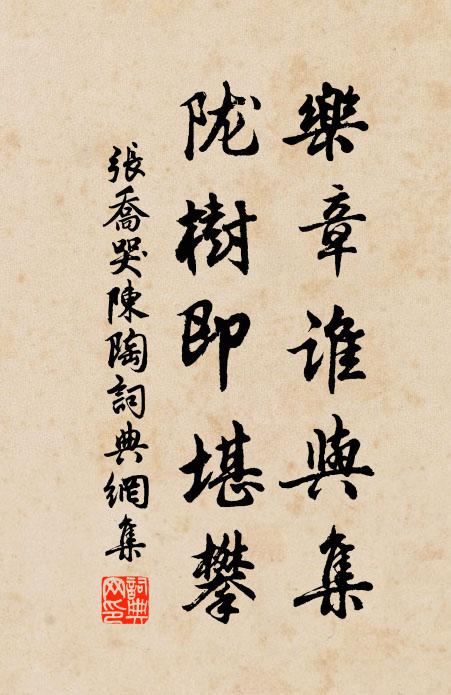 樂章誰與集
陇樹即堪攀
張喬哭陳陶詞典網集
詞典网印